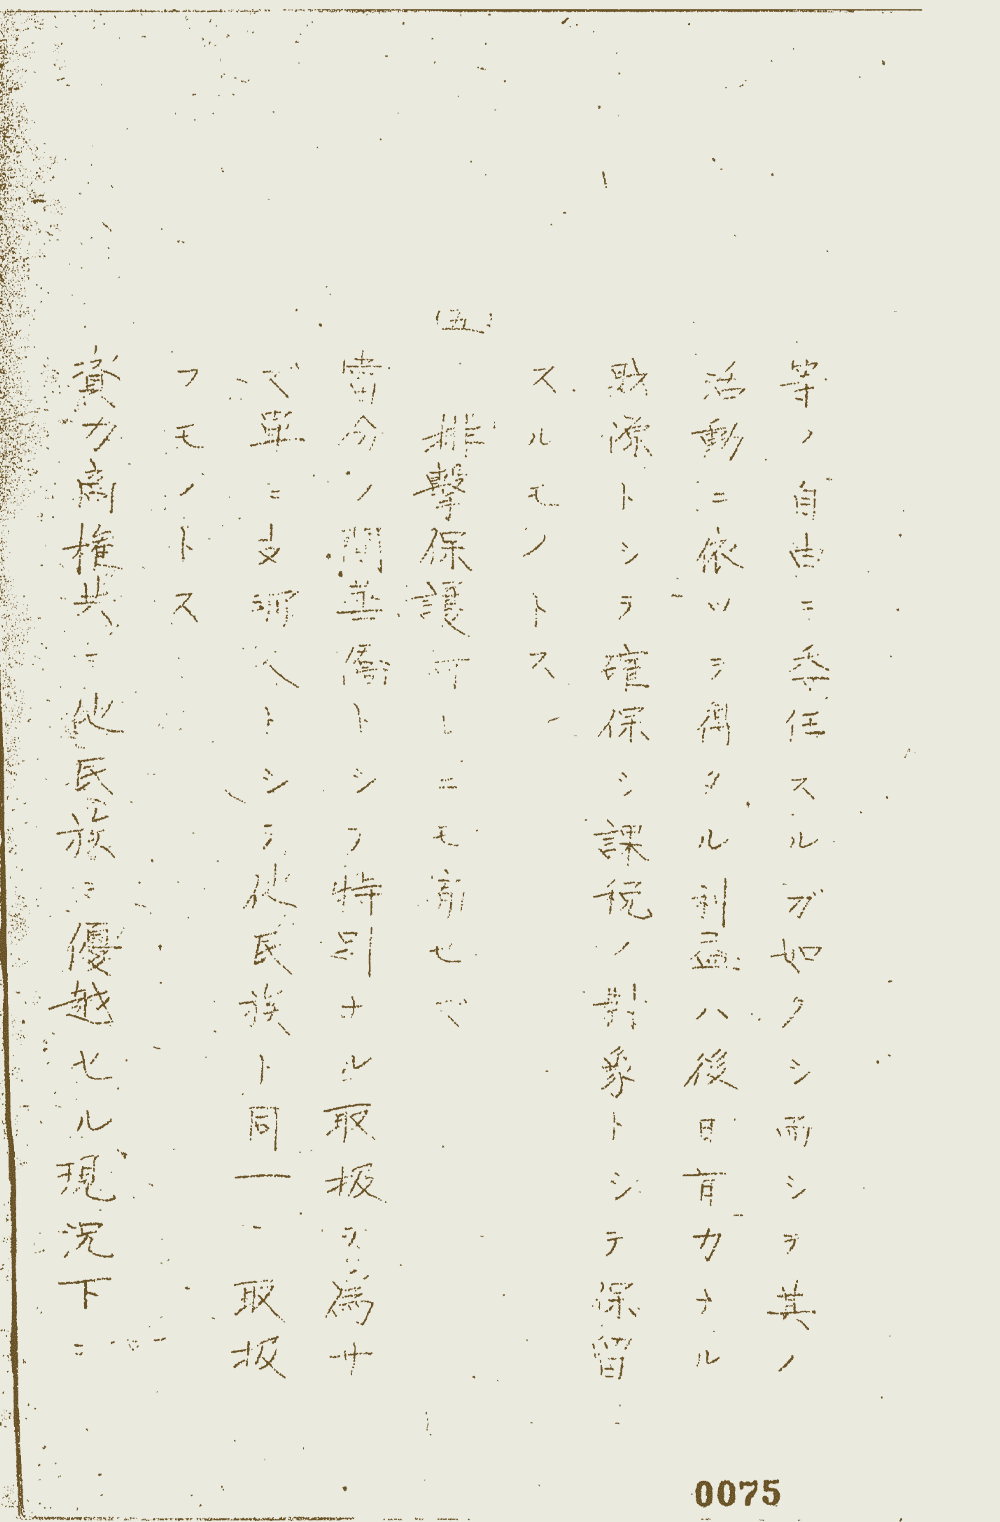 等ノ自由ニ委任スルガ如クシ而シテ其ノ
活動ニ依ツテ得タル利益ハ後日有力ナル
財源トシテ確保シ課税ノ対象トシテ保留
スルモノトス
(五) 排撃保護何レニモ寄セズ
當分ノ間華僑トシテ特別ナル取扱ヲ為サ
ズ單ニ支那人トシテ他民族ト同一ニ取扱
フモノトス
資力商権共ニ他民族ニ優越セル現況下ニ
0075